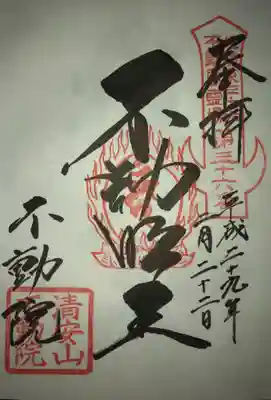 奉拝
平成二十九年
二月二十二日
不動明王
不動院
清安山
不動院